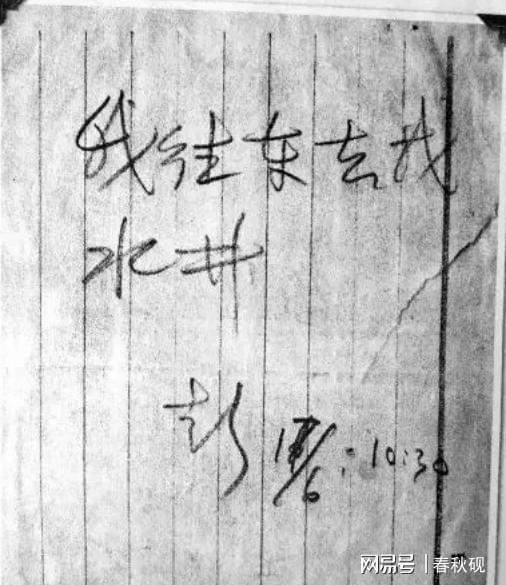 我往东去找
水井
彭 17/6: 10:30
网易号 | 春秋砚